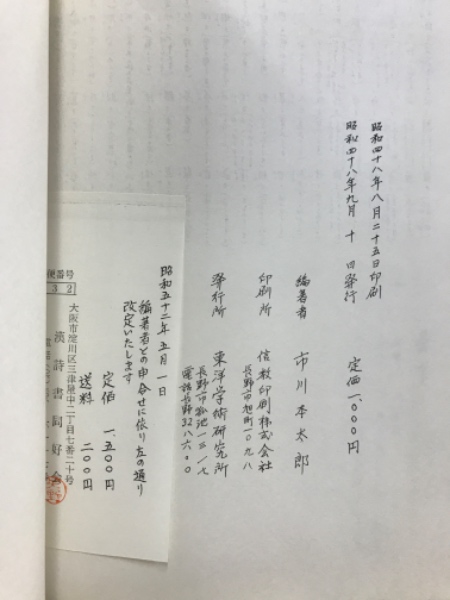 昭和四十八年八月二十五日印刷
昭和四十八年九月十日発行
定価一、〇〇〇円
編著者 市川本太郎
印刷所 信教印刷株式会社
長野市旭町一〇九八
発行所 東洋学術研究所
長野市
電話長野32八六〇〇
昭和五十二年五月一日
編著者との申合せに依り左の通り
改定いたします
定価 一、五〇〇円
送料 二〇〇円
便番号
32
大阪市淀川区三津屋中二丁目七番二十号
漢詩書同好会